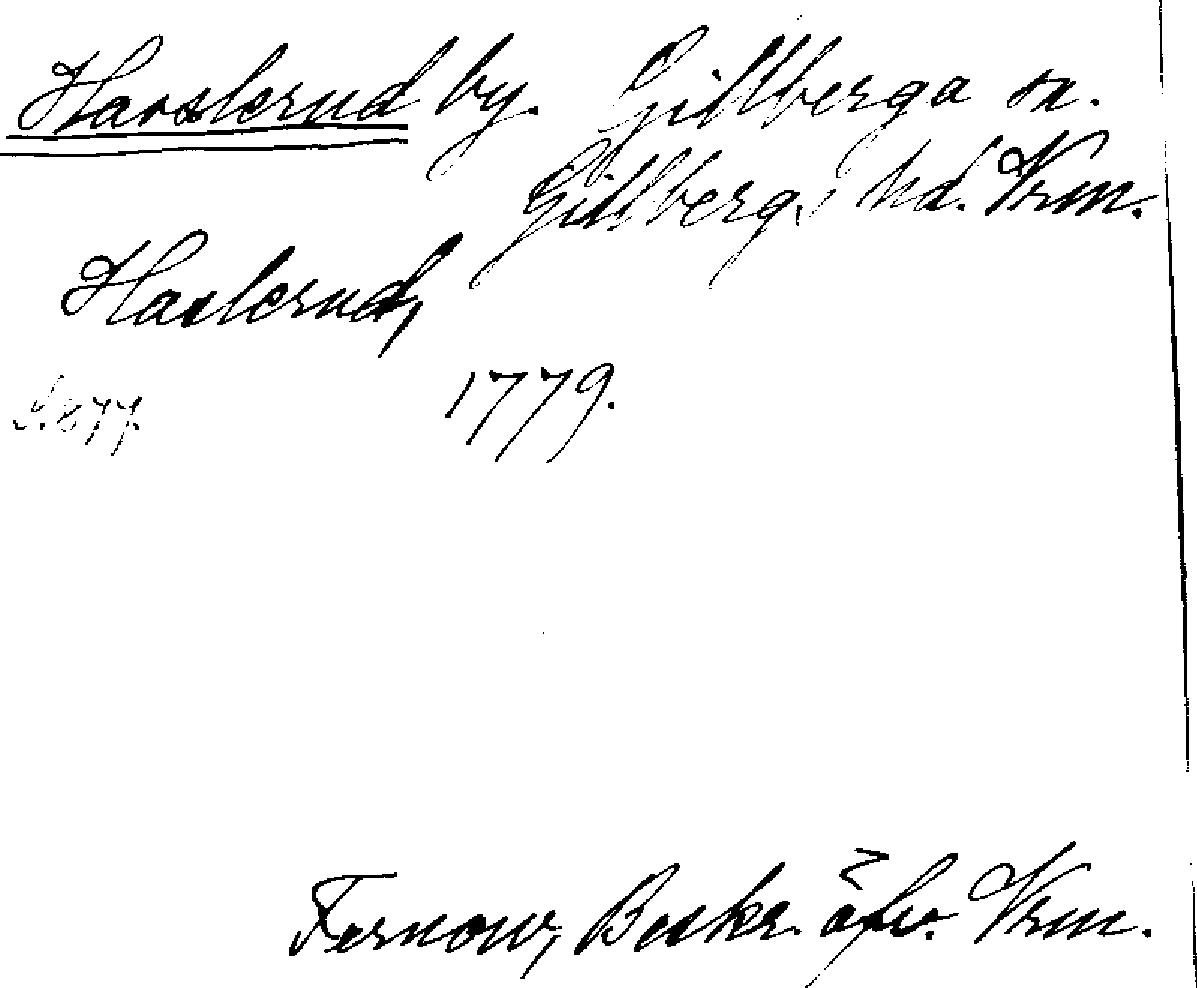 Haoslerud by. Gillberga sn.
Gillbergs hd. Vrm.
Haslerud,
S. 877. 1779.
Fernow, Beskr. öfv. Vrm.